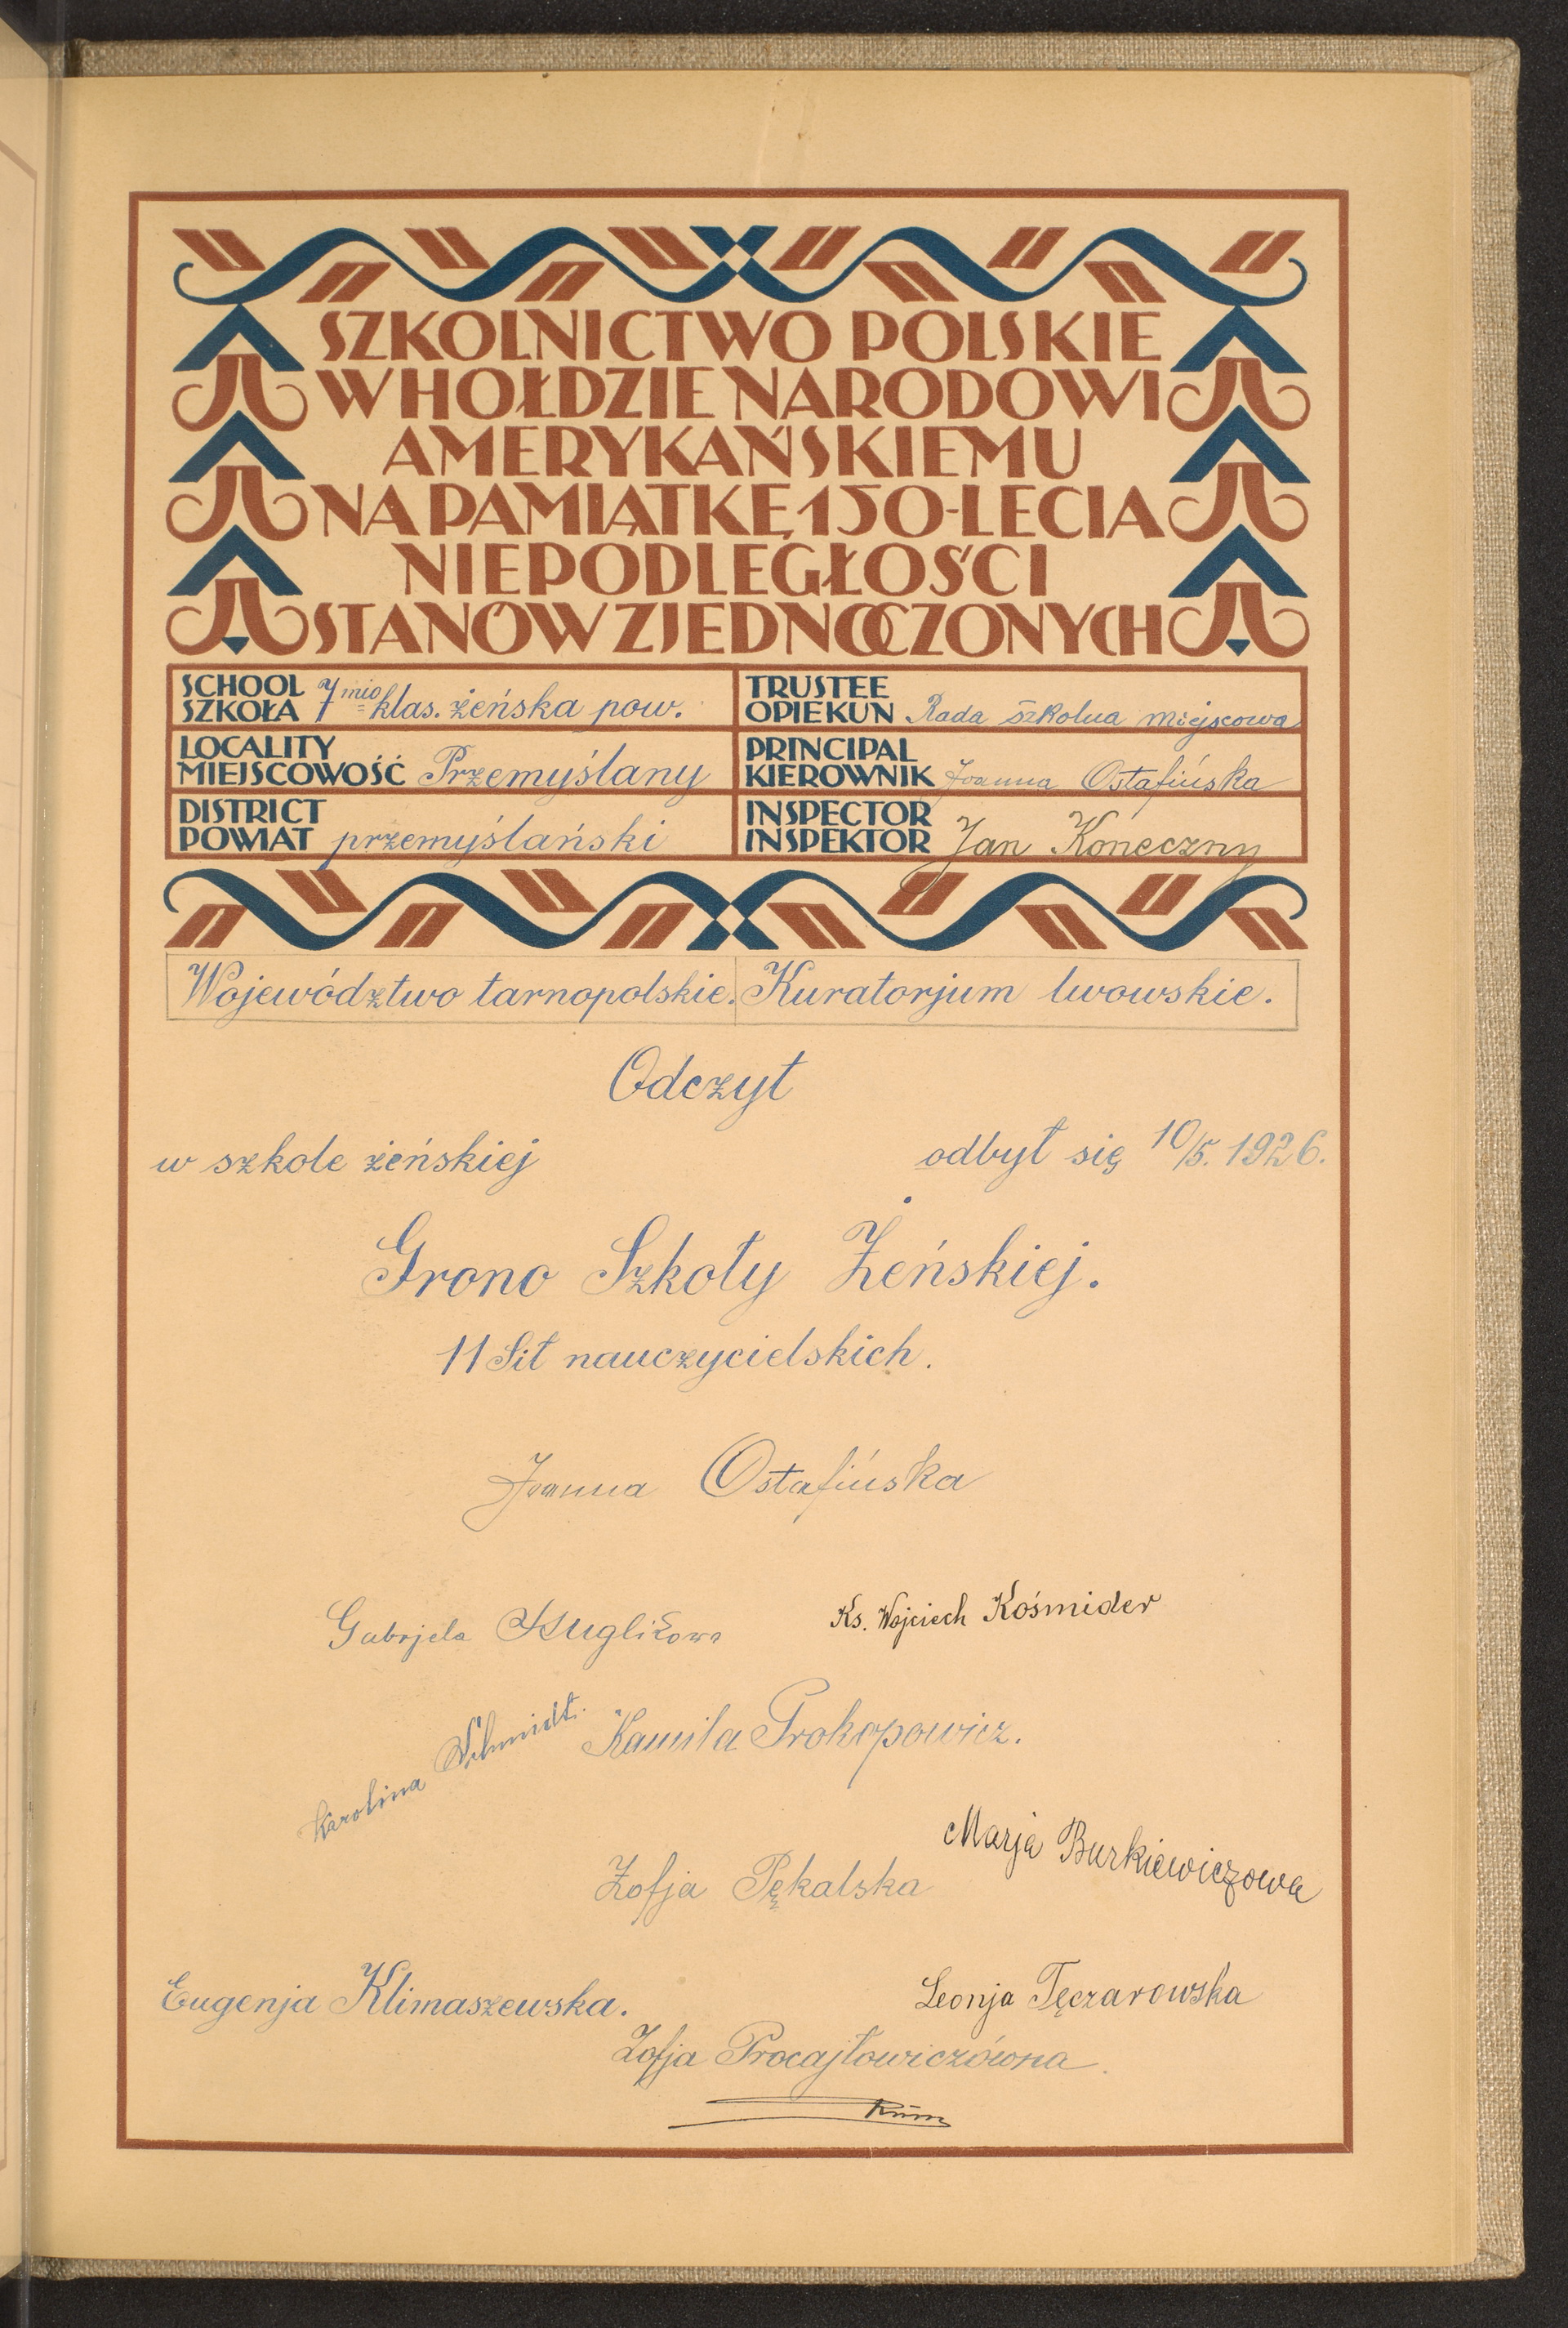 SZKOLNICTWO POLSKIE
W HOŁDZIE NARODOWI
AMERYKAŃSKIEMU
NA PAMIĄTKĘ 150-LECIA
NIEPODLEGŁOŚCI
STANÓW ZJEDNOCZONYCH
SCHOOL
SZKOŁA 7mio klas. żeńska pow.
TRUSTEE
OPIEKUN Rada szkolna miejscowa
LOCALITY
MIEJSCOWOŚĆ Przemyślany
PRINCIPAL
KIEROWNIK Joanna Ostafińska
DISTRICT
POWIAT przemyślański
INSPECTOR
INSPEKTOR Jan Koneczny
Województwo tarnopolskie. Kuratorjum lwowskie.
Odczyt
w szkole żeńskiej odbył się 10/5. 1926.
Grono Szkoły Żeńskiej.
11 Sił nauczycielskich.
Joanna Ostafińska
Gabrjela Kuglikowa Ks. Wojciech Kośmider
Karolina Schmidt. Kamila Prokopowicz.
Marja Burkiewiczowa
Zofja Pękalska
Eugenja Klimaszewska. Leonja Tęczarowska
Zofja Procajłowiczówna